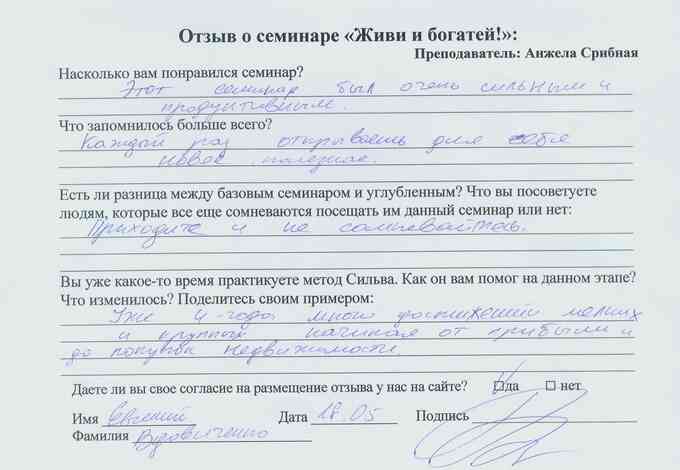 Отзыв о семинаре «Живи и богатей!»:
Преподаватель: Анжела Срибная
Насколько вам понравился семинар?
Этот семинар был очень сильным и
продуктивным.
Что запомнилось больше всего?
Каждый раз открываешь для себя
новое полезное.
Есть ли разница между базовым семинаром и углубленным? Что вы посоветуете
людям, которые все еще сомневаются посещать им данный семинар или нет:
Приходите и не сомневайтесь.
Вы уже какое-то время практикуете метод Сильва. Как он вам помог на данном этапе?
Что изменилось? Поделитесь своим примером:
Уже 4 года много достижений мелких
и крупных начиная от прибыли и
до покупки недвижимости.
Даете ли вы свое согласие на размещение отзыва у нас на сайте? да нет
Имя Евгений Дата 18.05 Подпись
Фамилия Вдовиченко